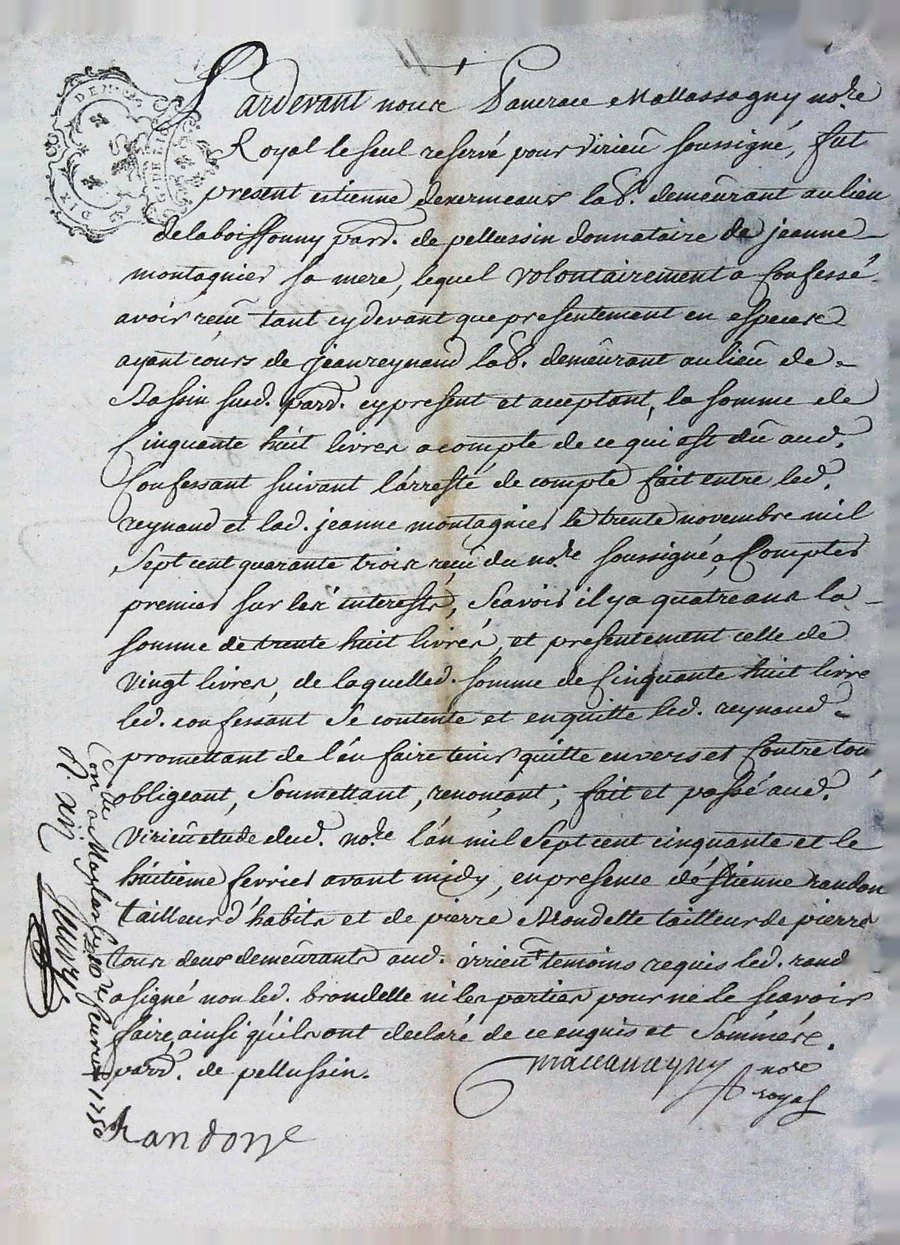 Pardevant nous Pancrace Mallassagny no.re
Royal le seul reservé pour Virieu soussigné, fut
present estienne la.b. demeurant au lieu
de laboissonny parr. de pellussin donnataire de jeanne
montagnier sa mere, lequel volontairement a Confessé
avoir recu tant cy devant que presentement en especes
ayant cours de jean reynaud la.b. demeurant au lieu de
Bassin sud. parr. cy present et acceptant, la somme de
Cinquante huit livres acompte de ce qui est dû aud.
Confessant suivant l'arresté de compte fait entre led.
reynaud et lad. jeanne montagnier le trente novembre mil
Sept cent quarante trois recu du no.re soussigné, a Compter
premier sur les interests, Scavoir il y a quatre ans la
somme de trente huit livres, et presentement celle de
Vingt livres, de laquelled. somme de Cinquante huit livre
led. confessant se contente et en quitte led. reynaud
promettant de l'en faire tenir quitte envers et Contre tou
obligeant, Soumettant, renonçant; fait et passé aud.
Virieu etude dud. no.re l'an mil Sept cent cinquante et le
huitieme fevrier avant midy, en presence d'Etienne randon
tailleur d'habits et de pierre tailleur de pierre
tous deux demeurants aud. virieu temoins requis led. rand
a signé non led. ni les parties pour ne le scavoir
faire, ainsi qu'ils ont declaré de ce enquis et Sommés.
parr. de pellussin.
mallassagny no.re
royal
Randon
Con.lé
Con a Maglas le 10 de fevrier 1750
r. xiij
DIX DEN.
DE LION